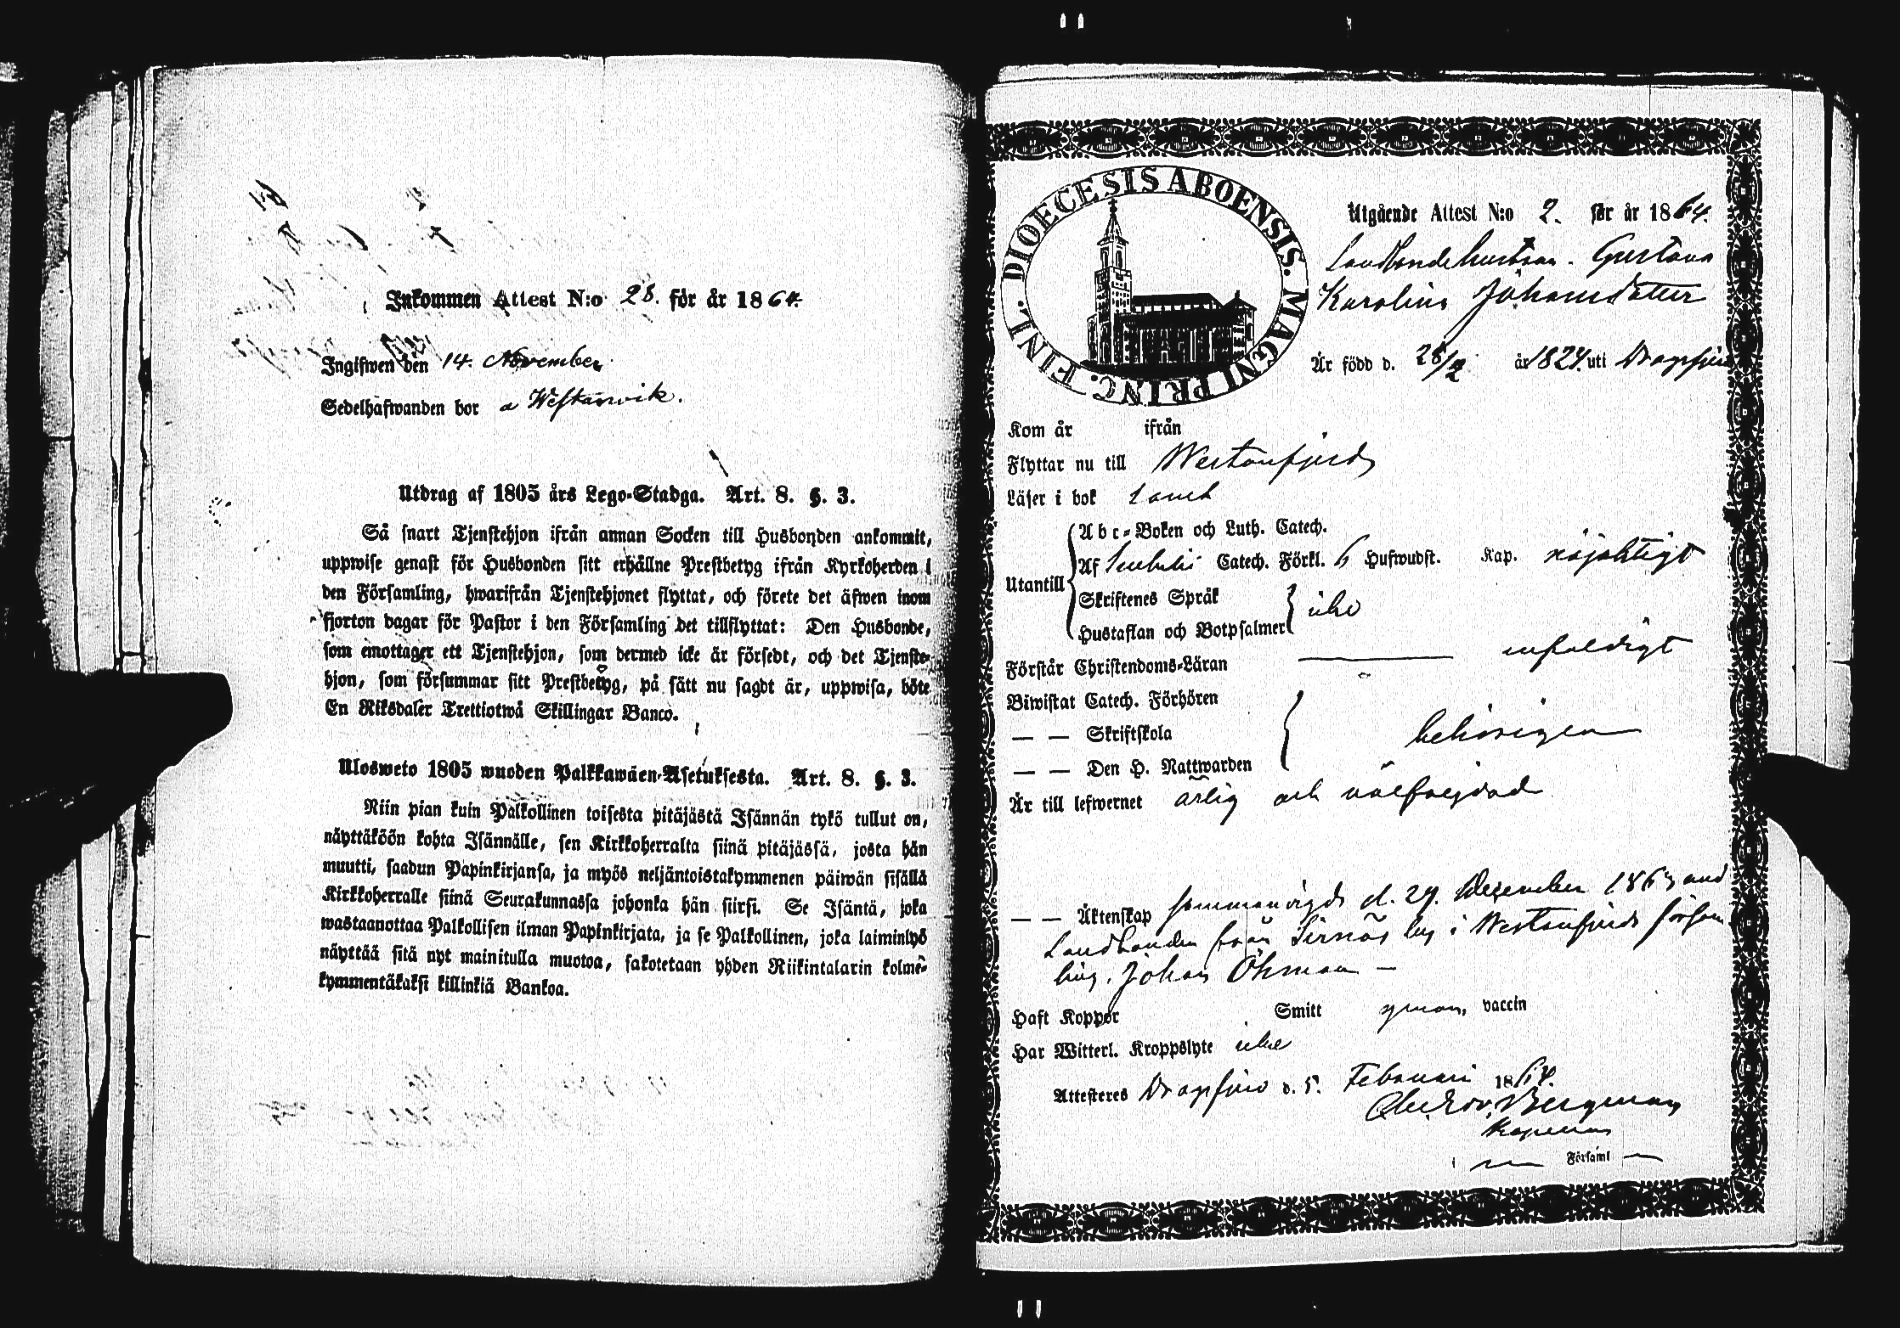 Inkommen Attest N:o 28. för år 1864.
Ingifwen den 14. November
Sedelhafwanden bor a Westanvik.
Utdrag af 1805 års Lego-Stadga. Art. 8. §. 3.
Så snart Tjenstehjon ifrån annan Socken till Husbonden ankommit,
uppwise genast för Husbonden sitt erhållne Prestbetyg ifrån Kyrkoherden i
den Församling, hwarifrån Tjenstehjonet flyttat, och förete det äfwen inom
fjorton dagar för Pastor i den Församling det tillflyttat: Den Husbonde,
som emottager ett Tjenstehjon, som dermed icke är försedt, och det Tjenste-
hjon, som försummar sitt Prestbetyg, på sätt nu sagdt är, uppwisa, böte
En Riksdaler Trettiotwå Skillingar Banco.
Ulosweto 1805 wuoden Palkkawäen-Asetuksesta. Art. 8. §. 3.
Niin pian kuin Palkollinen toisesta pitäjästä Isännän tykö tullut on,
näyttäköön kohta Isännälle, sen Kirkkoherralta siinä pitäjässä, josta hän
muutti, saadun Papinkirjansa, ja myös neljäntoistakymmenen päiwän sisällä
Kirkkoherralle siinä Seurakunnassa johonka hän siirsi. Se Isäntä, joka
wastaanottaa Palkollisen ilman Papinkirjata, ja se Palkollinen, joka laiminlyö
näyttää sitä nyt mainitulla muotoa, sakotetaan yhden Riikintalarin kolme-
kymmentäkaksi killinkiä Bankoa.
FINL. DIOECESIS ABOENSIS. MAGNI PRINC.
Utgående Attest N:o 2. för år 1864.
Landbondehustrun. Gustava
Karolina Johansdotter
Är född d. 28/2 år 1824. uti Dragsfjerd
Kom år ifrån
Flyttar nu till Westanfjerd
Läser i bok
Utantill
Abc-Boken och Luth. Catech.
Af Catech. Förkl. 6 Hufwudst. Kap. nöjaktigt
Skriftenes Språk
Hustaflan och Botpsalmer
icke
Förstår Christendoms-Läran enfaldigt
Biwistat Catech. Förhören
— — Skriftskola
— — Den H. Nattwarden
behörigen
Är till lefwernet ärlig och välfrejdad
— — Äktenskap sammanvigd d. 27. Dezember 1863 med
Landbonden från by i Westanfjerds försam
ling, Johan Öhman —
Haft Koppor Smitt genom vaccin
Har Witterl. Kroppslyte icke
Attesteres Dragsfjerd d. 5. Februari 1864.
Bergman
Kapellan
i Församl